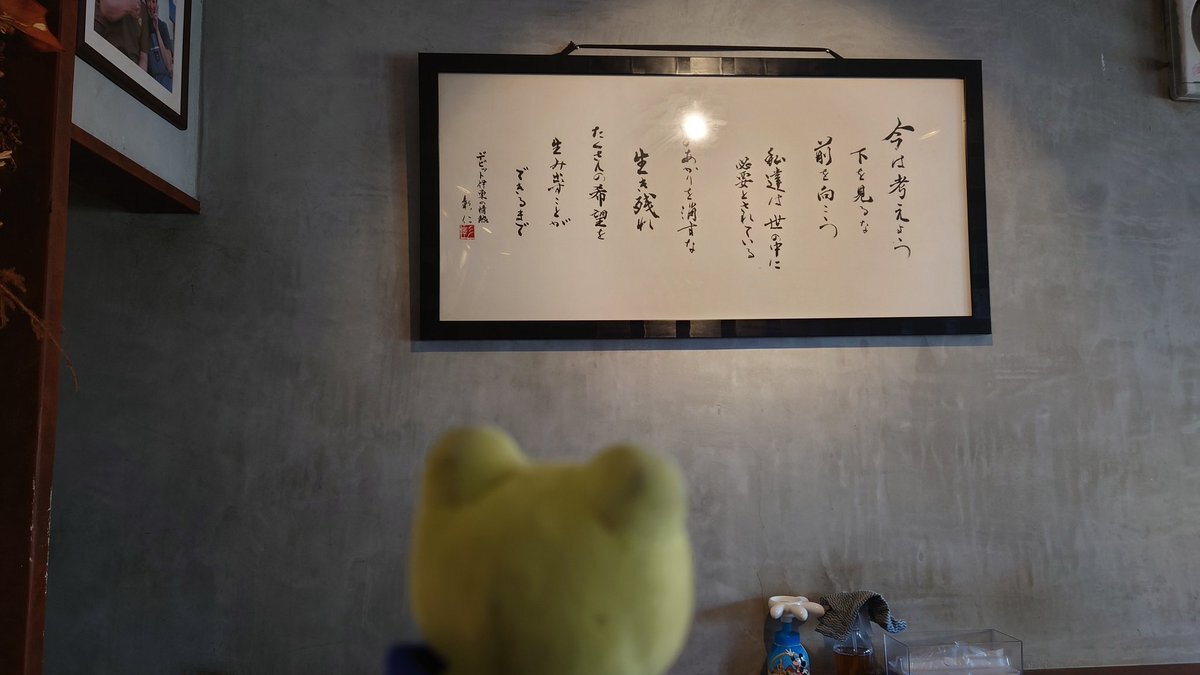 今は考えよう
下を見るな
前を向こう
私達は世の中に
必要とされている
あかりを消すな
生き残れ
たくさんの希望を
生み出すことが
できるまで
デビッド伊東の情熱
彰仁